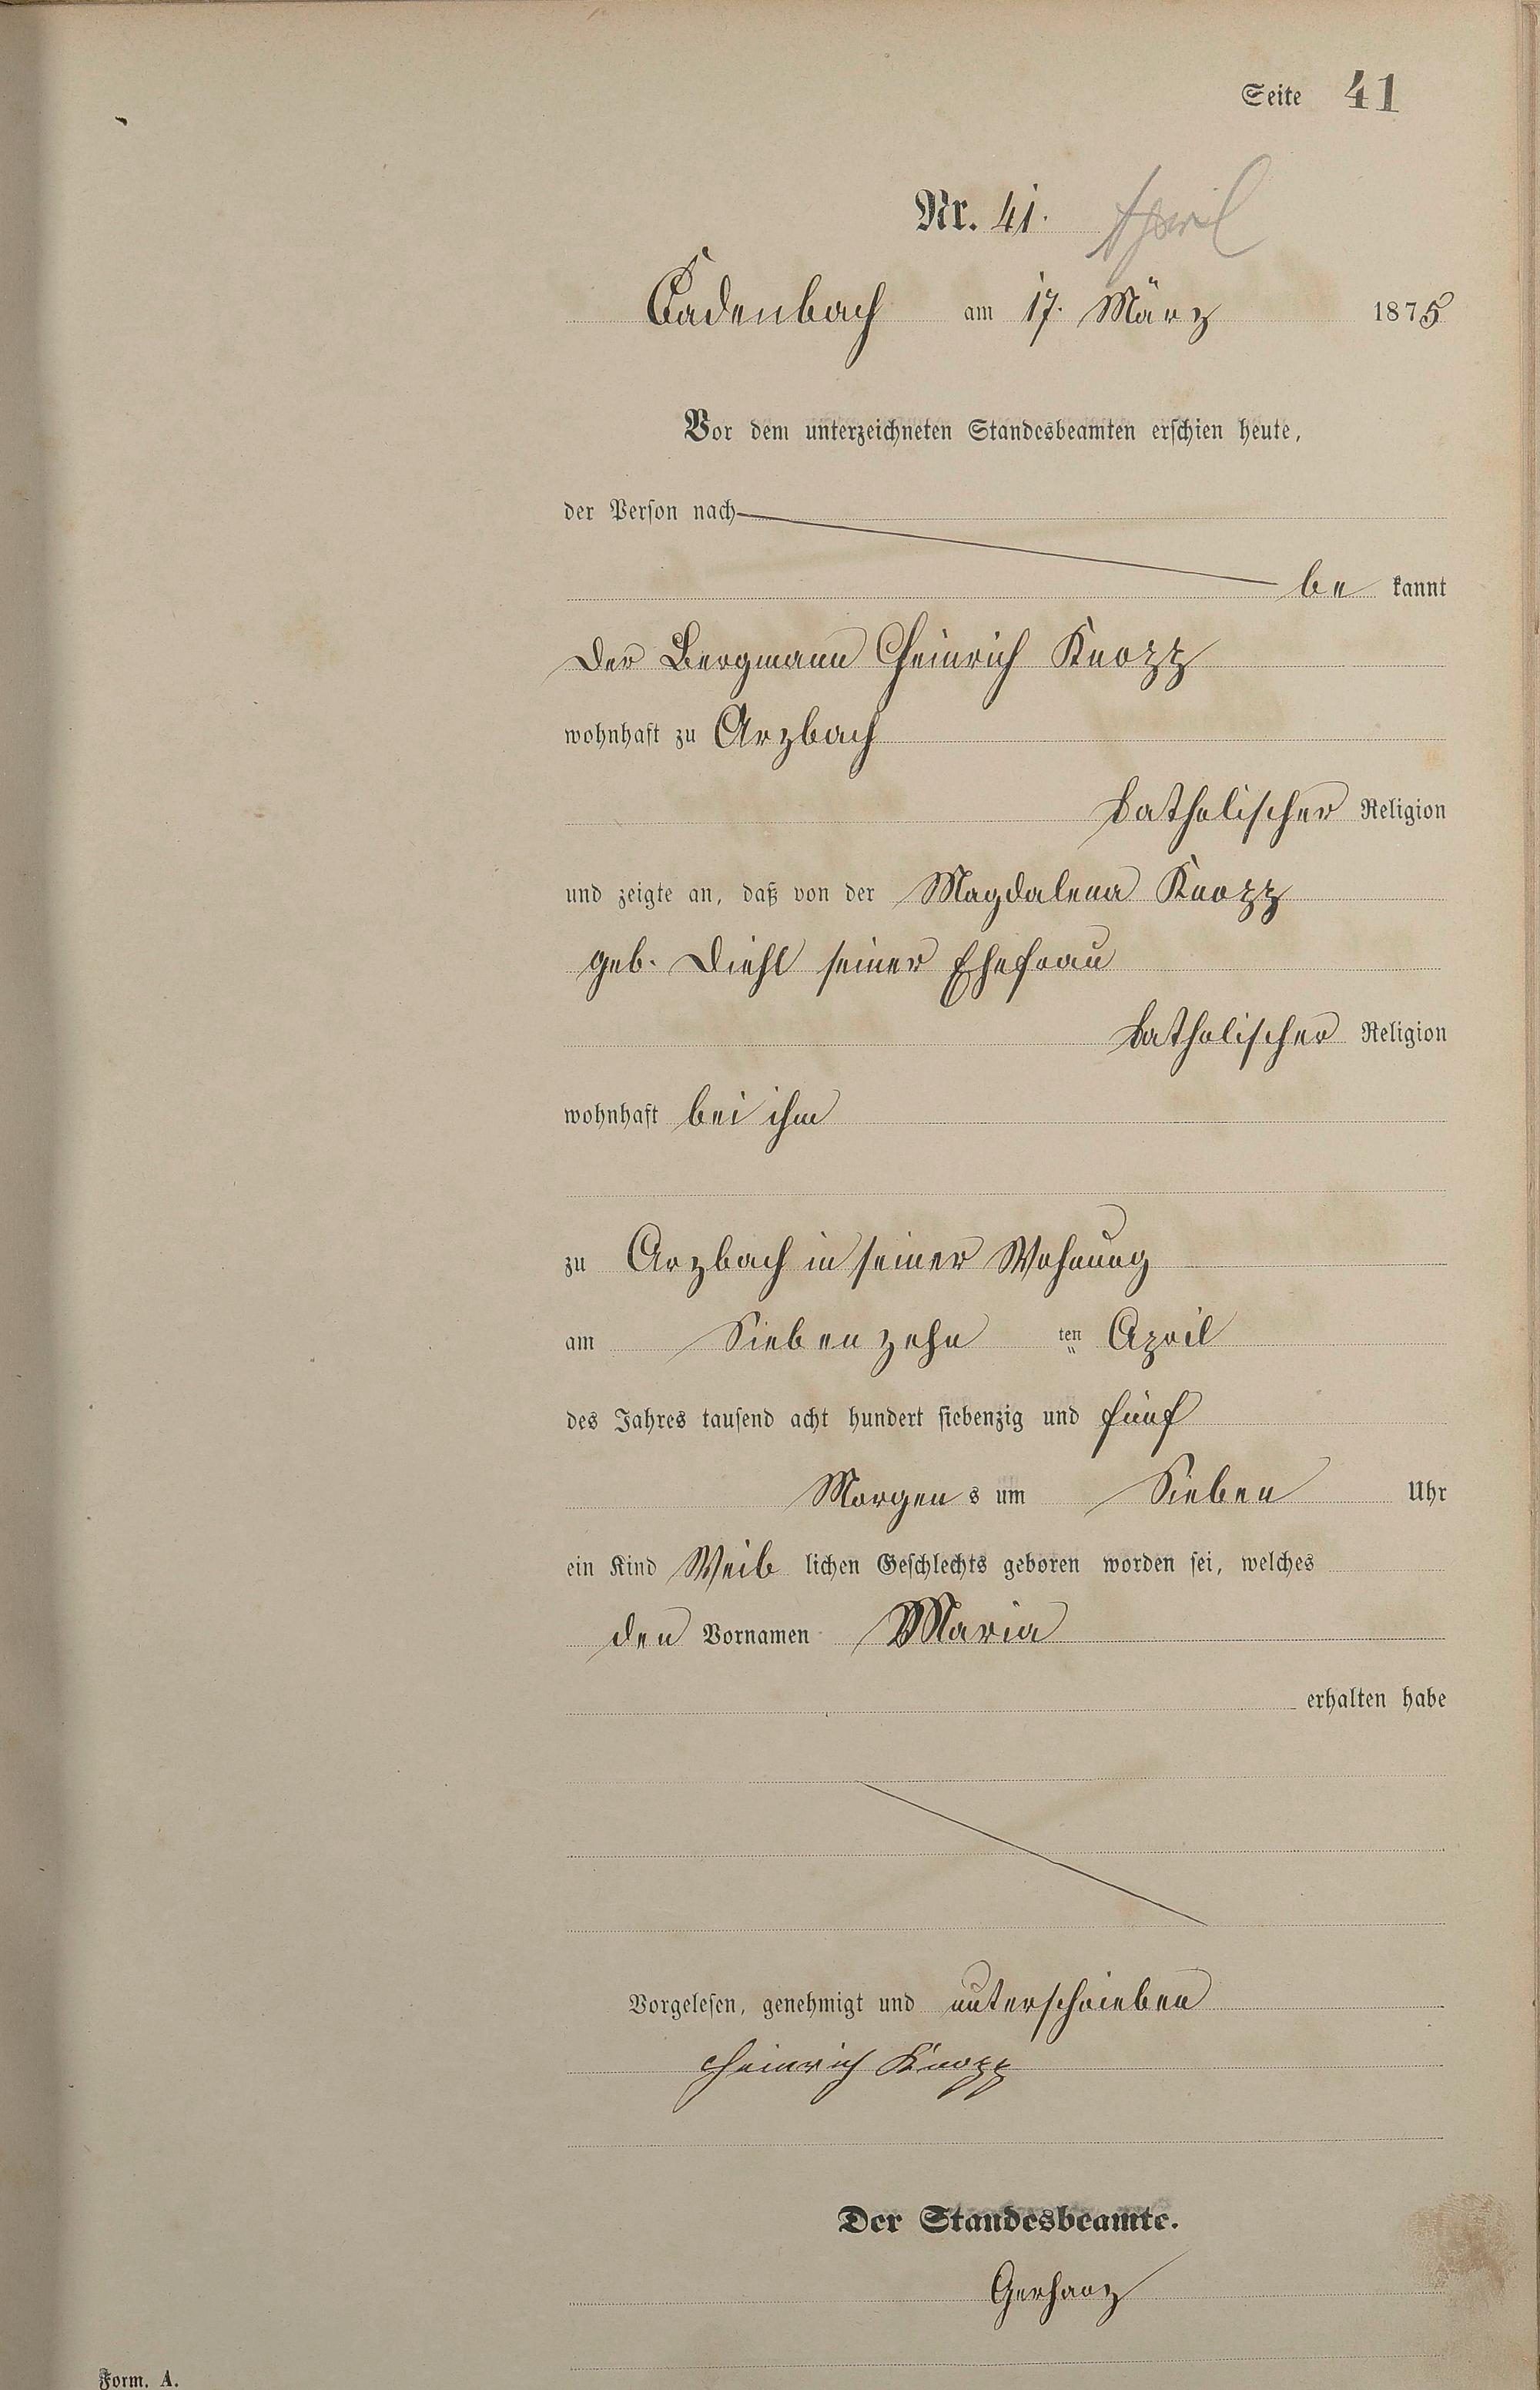 Seite 41
Nr. 41. April
Cadenbach am 17. März 1875
Vor dem unterzeichneten Standesbeamten erschien heute,
der Person nach
be kannt
der Bergmann Heinrich Knopp
wohnhaft zu Arzbach
katholischer Religion
und zeigte an, daß von der Magdalena Knopp
geb. Diehl seiner Ehefrau
katholischer Religion
wohnhaft bei ihm
zu Arzbach in seiner Wohnung
am Siebenzehn ten April
des Jahres tausend acht hundert siebenzig und fünf
Morgen s um Sieben Uhr
ein Kind Weib lichen Geschlechts geboren worden sei, welches
den Vornamen Maria
erhalten habe
Vorgelesen, genehmigt und unterschrieben
Heinrich Knopp
Der Standesbeamte.
Gerharz
Form. A.